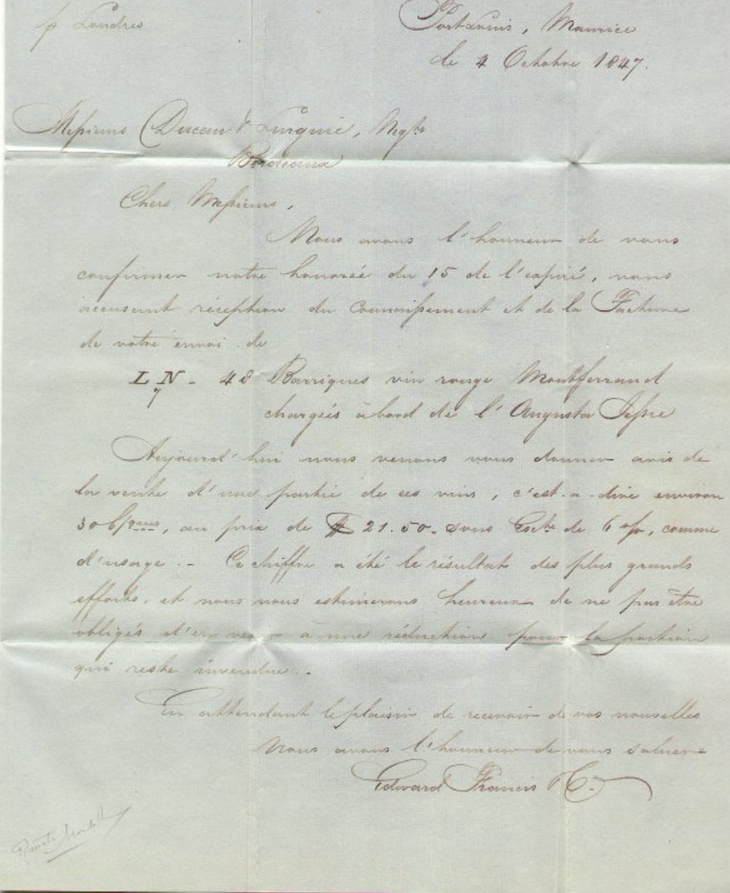 p Londres
Port Louis, Maurice
le 4 Octobre 1847.
Messieurs Ducau & Lurguie, Negts
Bordeaux
Chers Messieurs,
Nous avons l'honneur de vous
confirmer notre honorée du 15 de l'expiré, vous
accusant réception du Connaissement et de la Facture
de votre envoi de
LN - 48 Barriques vin rouge Montferrand
chargés à bord de l'Augusta Jessie
Aujourd'hui nous venons vous donner avis de
la vente d'une partie de ces vins, c'est-à-dire environ
30 b/ques, au prix de $ 21.50. sous Escte de 6 o/o, comme
d'usage. - Ce chiffre a été le résultat des plus grands
efforts, et nous nous estimerons heureux de ne pas être
obligés d'en venir à une réduction pour la portion
qui reste invendue. -
En attendant le plaisir de recevoir de vos nouvelles
Nous avons l'honneur de vous saluer
Edward Francis & Co.